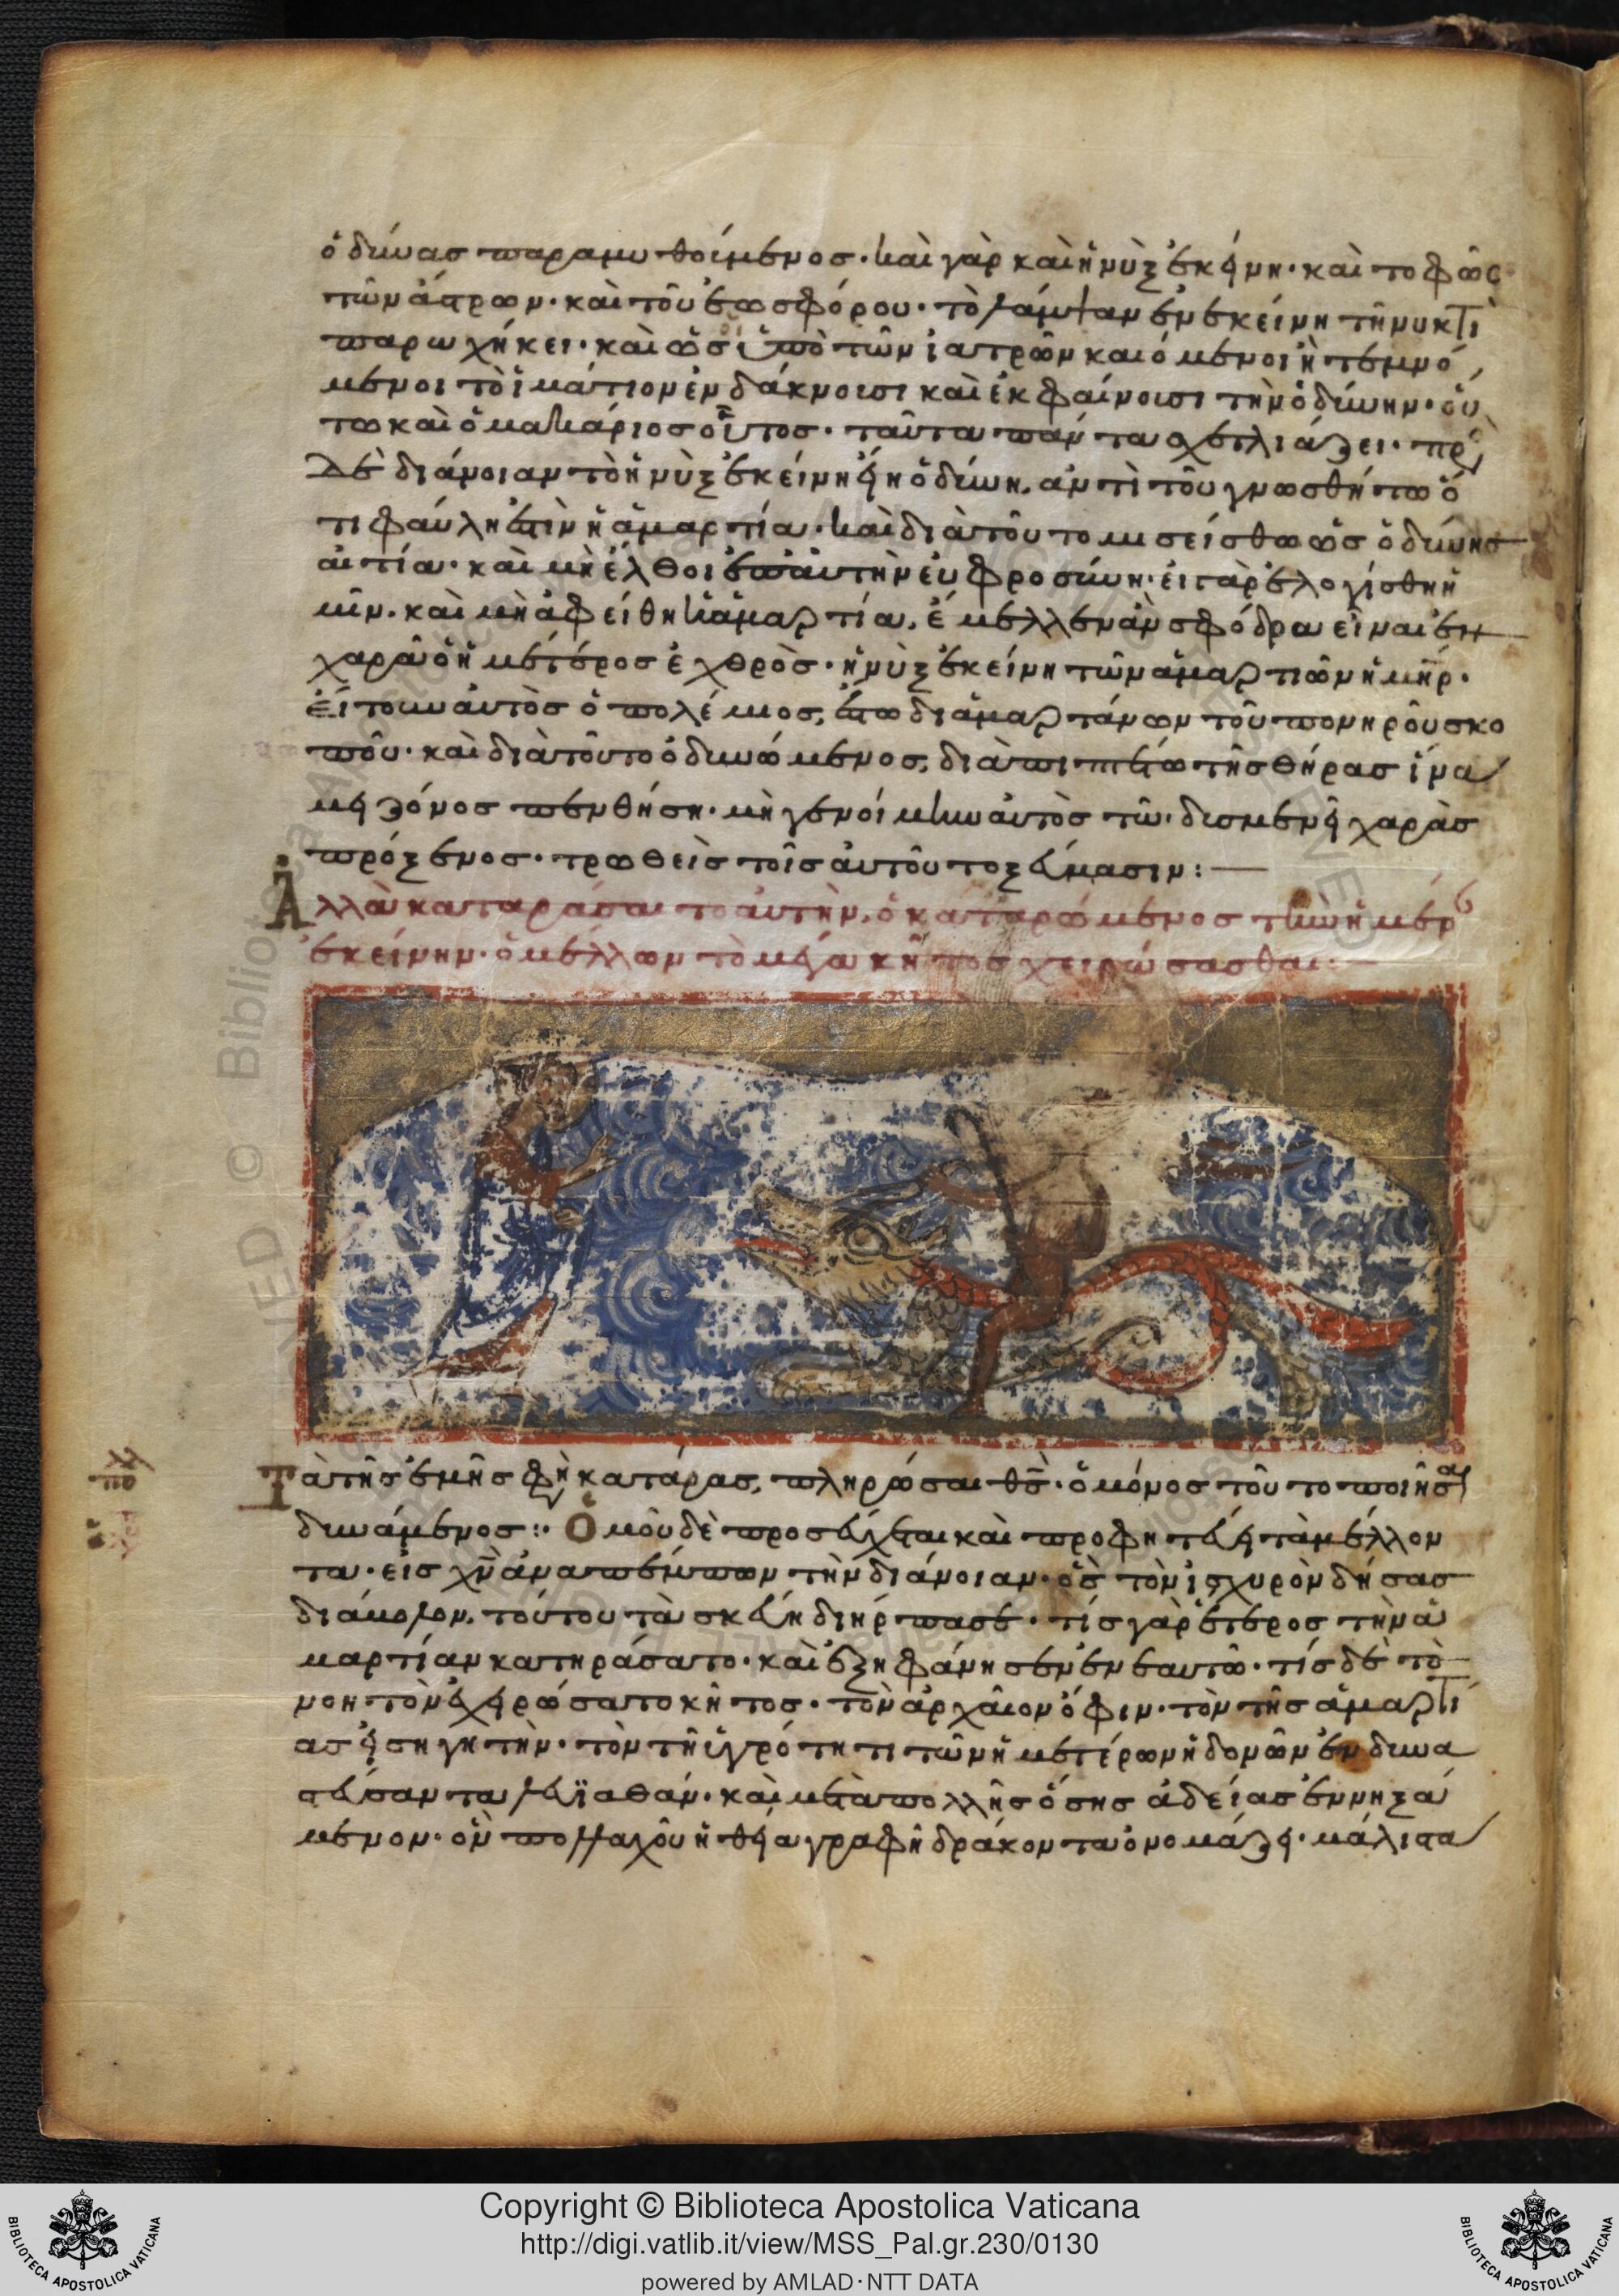 ὀδύνας παραμυθούμενος· καὶ γὰρ καὶ ἡ νὺξ ἐκείνη· καὶ τὸ φῶς
τῶν ἄστρων· καὶ τοῦ ἑωσφόρου· τὸ λάμψαν ἐν ἐκείνη τῆ νυκτὶ
παρωχήκει· καὶ ὡς οἱ ὑπὸ τῶν ἰατρῶν καιόμενοι ἢ τεμνό
μενοι τὸ ἱμάτιον ἐνδάκνουσι καὶ ἐκφαίνουσι τὴν ὀδύνην· οὕ
τω καὶ ὁ μακάριος οὗτος· ταῦτα πάντα σχετλιάζει· πρὸς
δὲ διάνοιαν τὸ ἡ νὺξ ἐκείνη εἴη ὀδύνη, ἀντὶ τοῦ γνωσθήτω ὅ
τι φαύλη ἐστὶν ἡ ἁμαρτία· καὶ διὰ τοῦτο μισείσθω ὡς ὀδύνης
αἰτία· καὶ μὴ ἔλθοι ἐπ' αὐτὴν εὐφροσύνη· εἰ γὰρ ἐλογίσθη ἡ
μῖν· καὶ μὴ ἀφείθη ἡ ἁμαρτία, ἔμελλεν ἂν σφόδρα εἶναι ἐν
χαρᾶ ὁ ἡμέτερος ἐχθρὸς· ἡ νὺξ ἐκείνη τῶν ἁμαρτιῶν ἡ μηρ·
αὐτὸς ὁ πόλεμος, ἔστω διαμαρτάνων τοῦ πονηροῦ σκο
ποῦ· καὶ διὰ τοῦτο ὀδυνώμενος, διαπιπτέτω τῆς θήρας ἵνα
μειζόνως πενθήση· μὴ γενοίμην αὐτὸς τῶ δυσμενεῖ χαρᾶς
πρόξενος· τρωθεὶς τοῖς αὐτοῦ τοξεύμασιν:
Ἀλλὰ καταράσαιτο αὐτὴν, ὁ καταρώμενος τὴν ἡμέρ
ἐκείνην· ὁ μέλλων τὸ μέγα κῆτος χειρώσασθαι·
Τὰ τῆς ἐμῆς φὴ κατάρας, πληρώσαι θς· ὁ μόνος τοῦτο ποιῆσαι
δυνάμενος:· Ὁμοῦ δὲ προσεύχεται καὶ προφητεύει τὰ μέλλον
τα· εἰς χν ἀναπέμπων τὴν διάνοιαν· ὃς τὸν ἰσχυρὸν δήσας
διάβολον, τούτου τὰ σκεύη διήρπασε· τίς γὰρ ἕτερος τὴν ἁ
μαρτίαν κατηράσατο· καὶ ἐξηφάνησεν ἐν ἑαυτῶ· τίς δὲ τὸ
νοητὸν ἐχειρώσατο κῆτος· τὸν ἀρχαῖον ὄφιν· τὸν τῆς ἁμαρτί
ας εἰσηγητὴν· τὸν τῆ ὑγρότητι τῶν ἡμετέρων ἡδονῶν ἐνδυνα
στεύσαντα λευϊαθάν· καὶ μετὰ πολλῆς ὅσης ἀδείας ἐννηξά
μενον· ὃν πολλαχοῦ ἡ θεία γραφὴ δράκοντα ὀνομάζει· μάλιστα
Copyright © Biblioteca Apostolica Vaticana
http://digi.vatlib.it/view/MSS_Pal.gr.230/0130
powered by AMLAD·NTT DATA
BIBLIOTECA APOSTOLICA VATICANA
BIBLIOTECA APOSTOLICA VATICANA